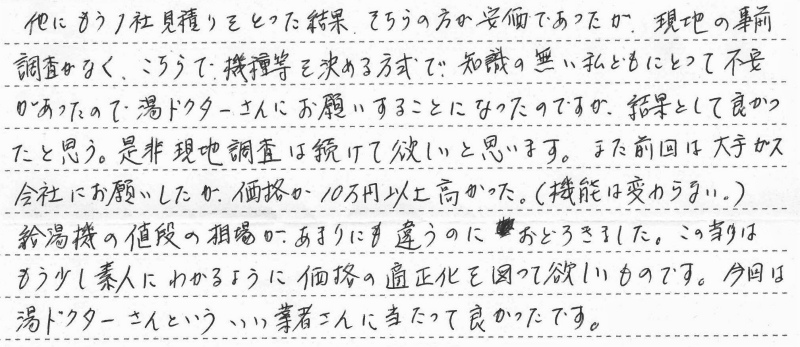 他にもう1社見積りをとった結果、そちらの方が安価であったが、現地の事前
調査がなく、こちらで機種等を決める方式で、知識の無い私どもにとって不安
があったので湯ドクターさんにお願いすることになったのですが、結果として良かっ
たと思う。是非現地調査は続けて欲しいと思います。また前回は大手ガス
会社にお願いしたが、価格が10万円以上高かった。(機能は変わらない。)
給湯機の値段の相場が、あまりにも違うのにおどろきました。この辺は
もう少し素人にわかるように価格の適正化を図って欲しいものです。今回は
湯ドクターさんといういい業者さんに当たって良かったです。